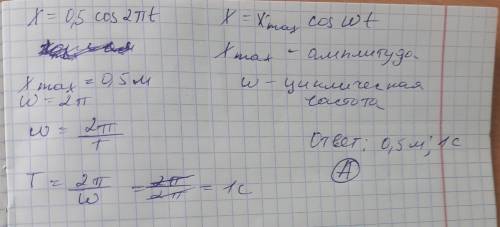 x = 0,5 cos 2πt
Xmax = 0,5 м
ω = 2π
ω = 2π/T
T = 2π/ω = 2π/2π = 1с
x = Xmax cos ωt
Xmax - амплитуда.
ω - циклическая
частота
Ответ: 0,5 м; 1с
А